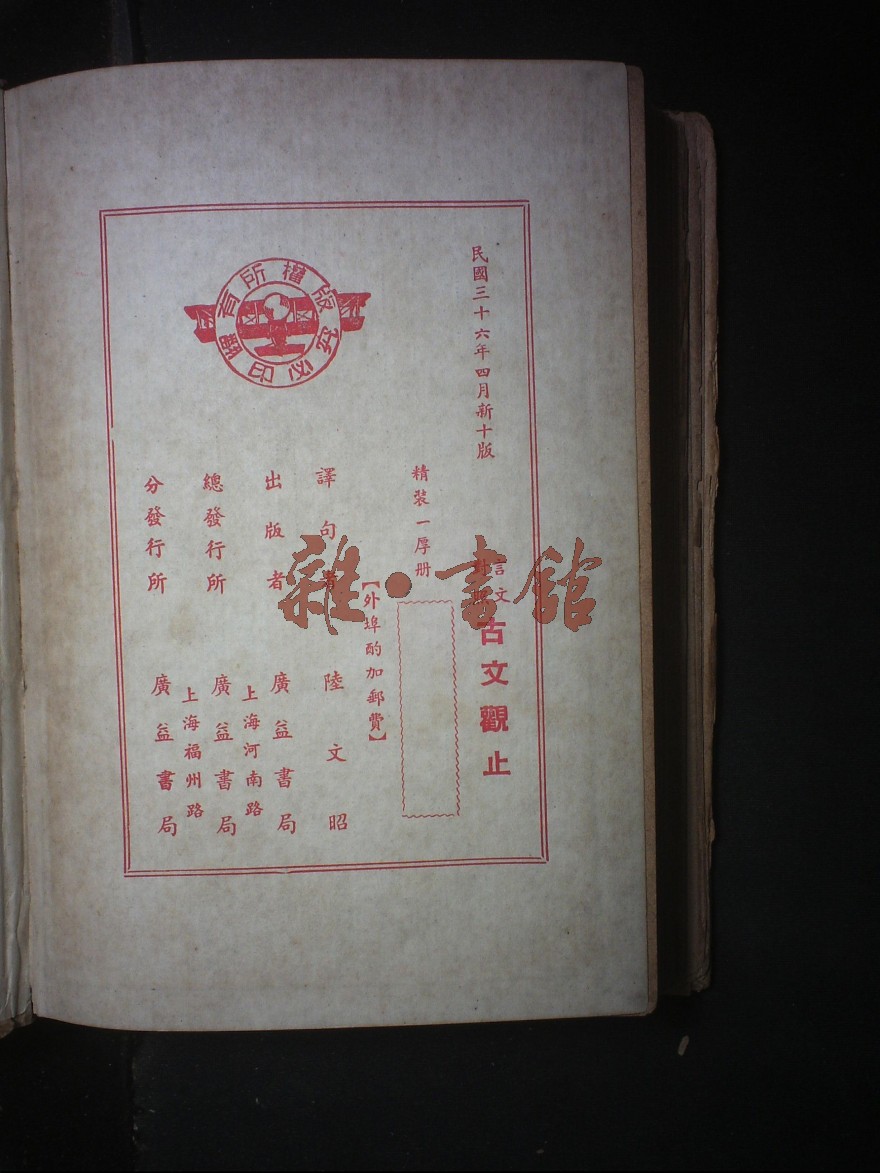 民國三十六年四月新十版
言文
對照
古文觀止
精裝一厚册
【外埠酌加郵費】
譯句者 陸文昭
出版者 廣益書局
上海河南路
總發行所 廣益書局
上海福州路
分發行所 廣益書局
版權所有
翻印必究
雜·書館